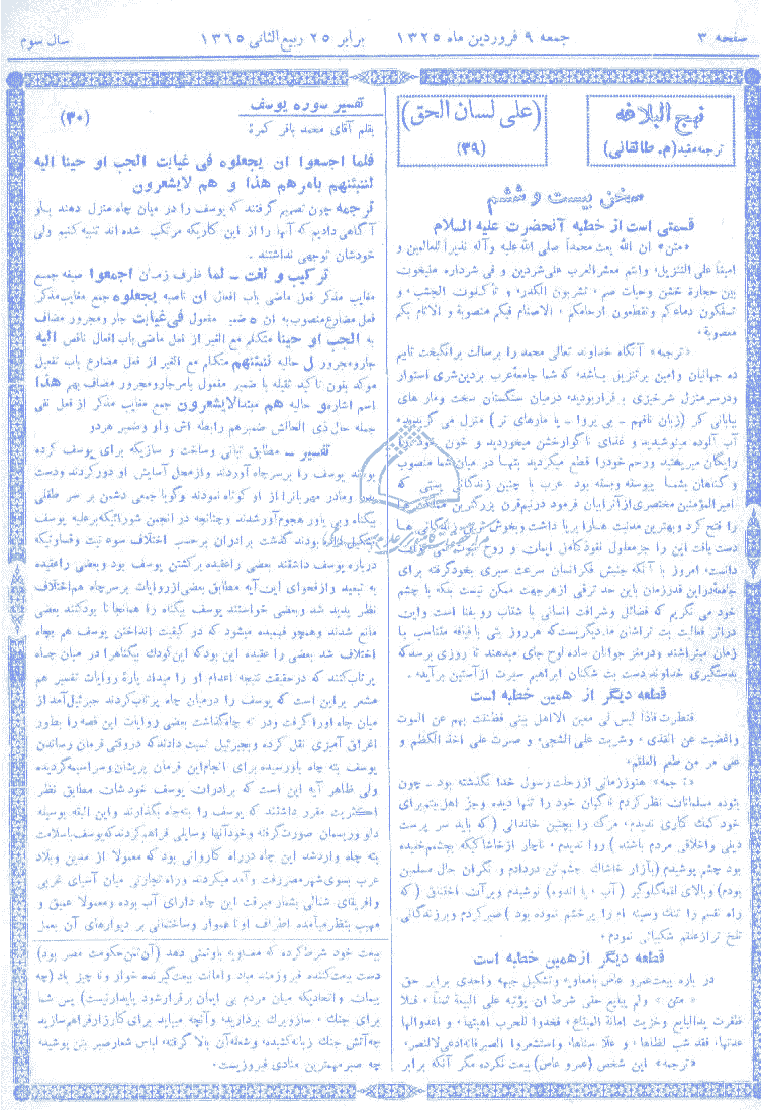 صفحه ۳
جمعه ۹ فروردین ماه ۱۳۲۵
برابر ۲۵ ربیع الثانی ۱۳۶۵
سال سوم
نهج البلاغه
ترجمه مفید (م. طالقانی)
(علی لسان الحق)
(۳۹)
سخن بیست و ششم
قسمتی است از خطبه آنحضرت علیه السلام
«متن» ان الله بعث محمداً صلی الله علیه و آله نذیراً للعالمین و
امیناً علی التنزیل، وانتم معشر العرب علی شر دین و فی شر داره منیخون
بین حجارة خشن وحیات صم، تشربون الکدر، و تأکلون الجشب، و
تسفکون دماءکم وتقطعون ارحامکم، الاصنام فیکم منصوبة و الاثام بکم
معصوبة.
«ترجمه» آنگاه خداوند تعالی محمد را برسالت برانگیخت تابیم
ده جهانیان وامین بر تنزیل باشد، که شما جامعه عرب بر دین شری استوار
ودر سر منزل شر خیزی برقرار بودید، درمیان سنگستان سخت ومار های
بیابانی کر (زبان نافهم - بی پروا - یا مارهای نر) منزل می گزیدید،
آب آلوده مینوشیدید و غذای ناگوار خشن میخوردید و خون خود را
رایگان میریختید ورحم خودرا قطع میکردید بتها در میان شما منصوب
و گناهان بشما پیوسته وبسته بود. عرب با چنین زندگانی پستی که
امیرالمؤمنین مختصری از آنرا بیان فرمود در نیم قرن بزرگترین
را فتح کرد وبهترین مدنیت هارا برپا داشت وبخوش ترین زندگانی ها
دست یافت این را جز معلول نفوذ کامل ایمان و روح
دانست، امروز با آنکه جنبش فکر انسان سرعت سیری بخود گرفته برای
جامعه در این قدر زمان باین حد ترقی از هر جهت ممکن نیست بلکه با چشم
خود می نگریم که فضائل وشرافت انسانی با شتاب رو بفنا است واین
در اثر فعالیت بت تراشان مادیگریست که هر روز بتی با قیافه متناسب با
زمان میتراشند ودر مغز جوانان ساده لوح جای میدهند تا روزی برسد که
بدستگیری خداوند دست بت شکنان ابراهیم سیرت از آستین برآید.
قطعه دیگر از همین خطبه است
فنظرت فاذا لیس لی معین الا اهل بیتی فضننت بهم عن الموت
واغضیت عن القذی، وشربت علی الشجی، و صبرت علی اخذ الکظم و
علی مر من طعم العلقم.
«ترجمه» هنوز زمانی از رحلت رسول خدا نگذشته بود - چون
بتوده مسلمانان نظر کردم ناگهان خود را تنها دیده وجز اهل بیتم برای
خود کمک کاری ندیدم، مرگ را بچنین خاندانی (که باید سر پرست
دینی واخلاقی مردم باشند) روا ندیدم، ناچار از خاشاکیکه بچشمم خلیده
بود چشم پوشیدم (با آزار خاشاک چشم تن دردادم و نگران حال مسلمین
بودم) و بالای لقمه گلوگیر (آب، یا اندوه) نوشیدم وبرآن اختناق (که
راه نفسم را تنک وسینه ام را پر خشم نموده بود) صبر کردم وبر زندگانی
تلخ تر از علقم شکیبائی نمودم.
قطعه دیگر از همین خطبه است
در باره بیعت عمرو عاص با معاویه وتشکیل جبهه واحدی برابر حق
«متن» ولم یبایع حتی شرط ان یؤتیه علی البیعة ثمناً، فلا
ظفرت ید البایع وخزیت امانة المبتاع، فخذوا للحرب اهبتها، و اعدوا لها
عدتها، فقد شب لظاها، و علا سناها، واستشعروا الصبر فانه ادعی لالنصر.
«ترجمه» این شخص (عمرو عاص) بیعت نکرده مگر آنکه برابر
تفسیر سوره یوسف
(۳۰)
بقلم آقای محمد باقر کمرهٔ
فلما اجمعوا ان یجعلوه فی غیابت الجب او حینا الیه
لتنبئنهم بامرهم هذا و هم لایشعرون
ترجمه چون تصمیم گرفتند که یوسف را در میان چاه منزل دهند باو
آگاهی دادیم که آنها را از این کاریکه مرتکب شده اند تنبیه کنیم ولی
خودشان توجهی نداشتند.
ترکیب و لغت - لما ظرف زمان اجمعوا صیغه جمع
مغایب مذکر فعل ماضی باب افعال ان ناصبه یجعلوه جمع مغایب مذکر
فعل مضارع منصوب به ان ه ضمیر مفعول فی غیابت جار ومجرور مضاف
به الجب او حینا متکلم مع الغیر از فعل ماضی باب افعال ناقص الیه
جار ومجرور ل حالیه تنبئنهم متکلم مع الغیر از فعل مضارع باب تفعیل
موکد بنون تاکید ثقیله با ضمیر مفعول بامر جار ومجرور مضاف بهم هذا
اسم اشاره و حالیه هم مبتدا لایشعرون جمع مغایب مذکر از فعل نفی
جمله حال ذی الحالش ضمیر هم رابطه اش واو وضمیر هر دو
تفسیر - مطابق تبانی وساخت و سازیکه برای یوسف کرده
بودند یوسف را بر سر چاه آوردند واز محل آسایش او دور کردند ودست
پدر ومادر مهربانرا از او کوتاه نمودند وگویا جمعی دشمن بر سر طفلی
بیگناه وبی یاور هجوم آور شدند وچنانچه در انجمن شورائیکه بر علیه یوسف
تشکیل داده بودند گذشت برادران بر حسب اختلاف سوء نیت وقساوتیکه
درباره یوسف داشتند بعضی را عقیده بر کشتن یوسف بود وبعضی را عقیده
به تبعید واز فحوای این آیه مطابق بعضی از روایات بر سر چاه هم اختلاف
نظر پدید شد وبعضی خواستند یوسف بیگناه را همانجا نابود کنند بعضی
مانع شدند وهمچو فهمیده میشود که در کیفیت انداختن یوسف هم بچاه
اختلاف شد بعضی را عقیده این بود که این کودک بیگناه را در میان چاه
پرتاب کنند که در حقیقت نتیجه اعدام او را میداد پارهٔ روایات تفسیر هم
مشعر بر این است که یوسف را در میان چاه پرتاب کردند جبرئیل آمد از
میان چاه او را گرفت ودر ته چاه گذاشت بعضی روایات این قصه را بطور
اغراق آمیزی نقل کرده و بجبرئیل نسبت دادند که در وقتی فرمان رساندن
یوسف بته چاه باو رسیده برای انجام این فرمان پریشان وسراسیمه گردیده
ولی ظاهر آیه این است که برادران یوسف خودشان مطابق نظر
اکثریت مقرر داشتند که یوسف را بته چاه بگذارند واین البته بوسیله
دلو وریسمان صورت گرفته وخود آنها وسایلی فراهم کردند که یوسف بسلامت
بته چاه وارد شد این چاه در راه کاروانی بود که معمولا از مدین وبلاد
عرب بسوی شهر مصر رفت وآمد میکردند وراه تجارتی میان آسیای غربی
وافریقای شمالی بشمار میرفت این چاه دارای آب بوده ومعمولا عمیق و
مهیب بنظر میآمده اطراف او ناهموار وساختمانی بر دیوارهای آن بعمل
بیعت خود شرط کرده که معاویه باو ثمنی دهد (آن ثمن حکومت مصر بود)
دست بیعت کننده فیروزمند مباد وامانت بیعت گیرنده خوار وناچیز باد (چه
پیمان واتحادیکه میان مردم بی ایمان برقرار شود پایدار نیست) پس شما
برای جنک، ساز وبرک بردارید، وآنچه میباید برای کارزار فراهم سازید
چه آتش جنک زبانه کشیده، وشعله آن بالا گرفته، لباس شعار صبر بتن پوشید،
چه صبر مهمترین منادی فیروزیست.